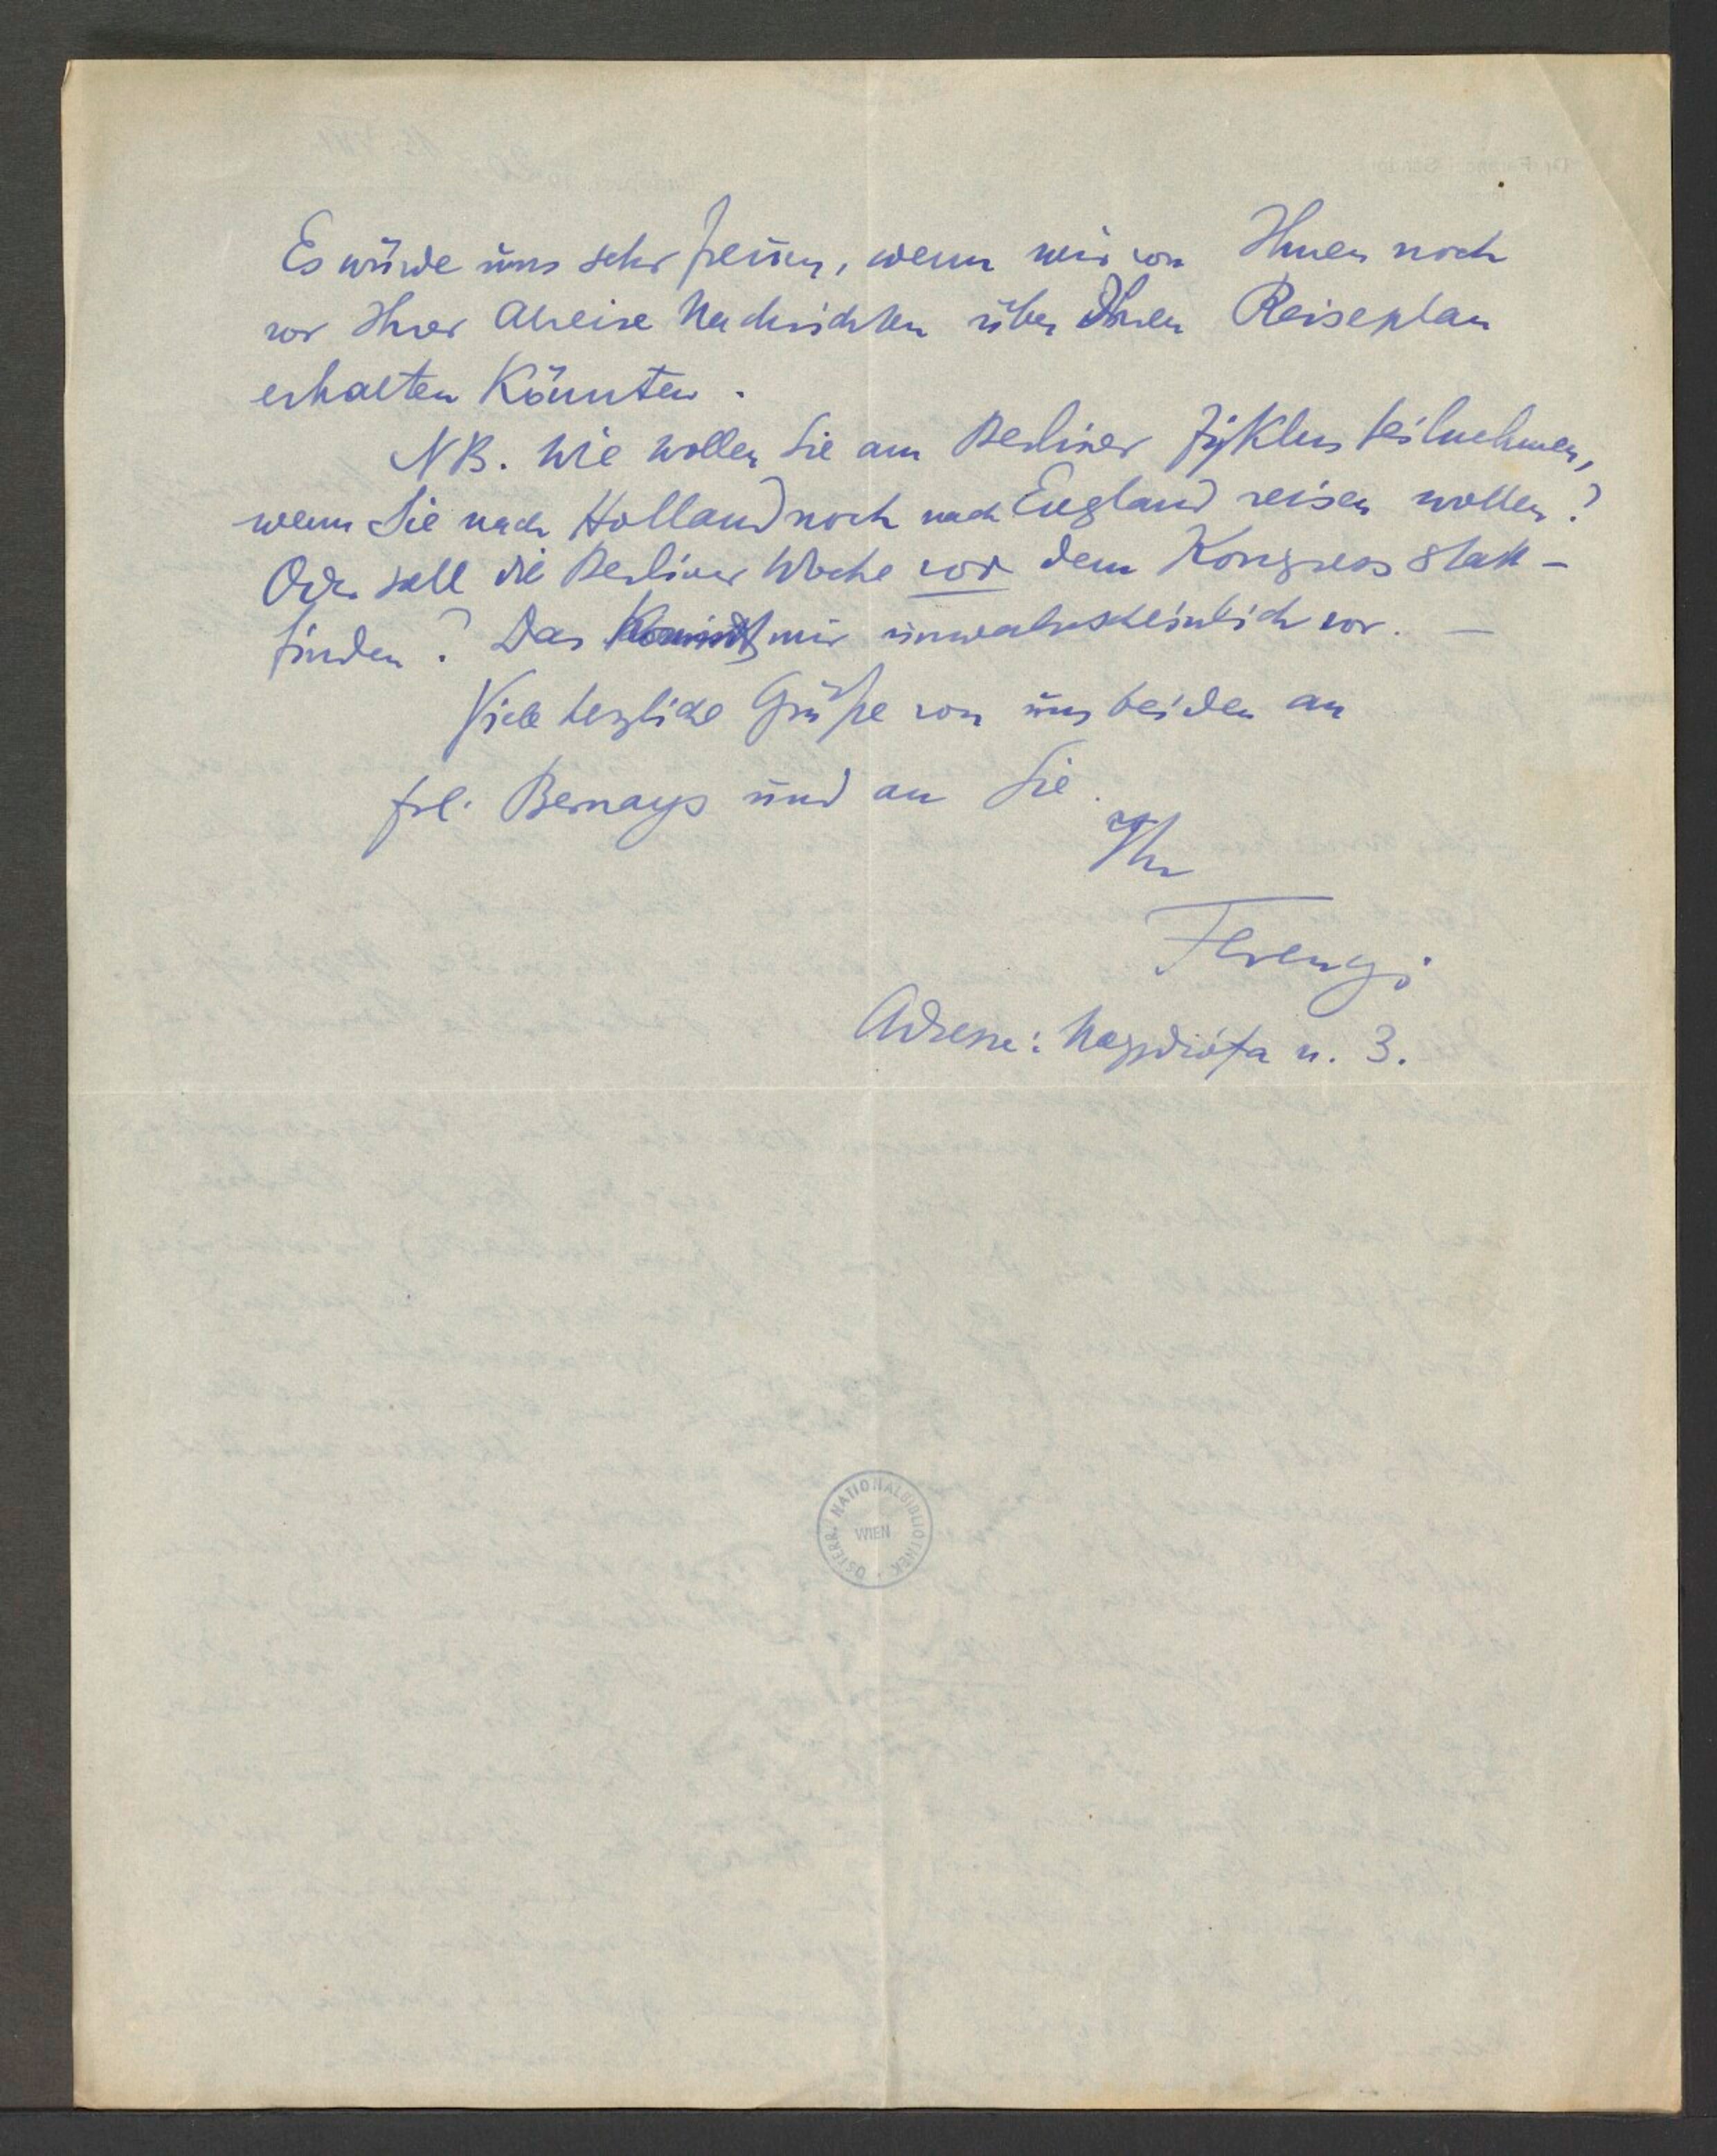 Es würde uns sehr freuen, wenn wir von Ihnen noch
vor Ihrer Abreise Nachrichten über Ihren Reiseplan
erhalten könnten.
NB. Wie wollen Sie am Berliner Zyklus teilnehmen,
wenn Sie nach Holland noch nach England reisen wollen?
Oder soll die Berliner Woche vor dem Kongress statt-
finden? Das kommt mir unwahrscheinlich vor. —
Viele herzliche Grüße von uns beiden an
Frl. Bernays und an Sie.
Ihr
Ferenczi
Adresse: Nagydiófa u. 3.
ÖSTERR. NATIONALBIBLIOTHEK
WIEN